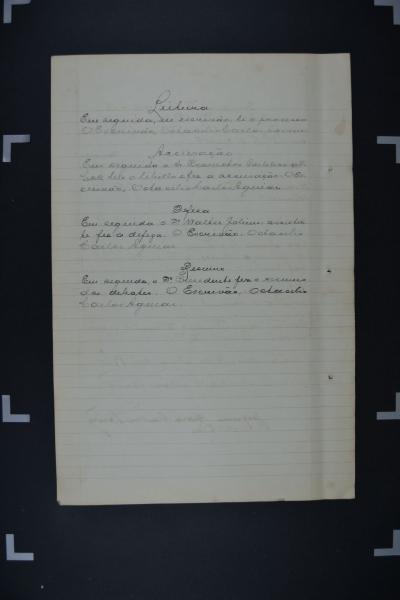 Leitura
Em seguida, eu escrivão, li o processo
O Escrivão, Octacilio Carlos
Accusação
Em seguida o Dr. Promotor
o libello e fez a accusação. O Es-
crivão, Octacilio Carlos Aguiar.
Defesa
Em seguida o Dr. Walter
fez a defeza. O Escrivão. Octacilio
Carlos Aguiar.
Resumo
Em seguida, o Dr. Presidente fez o resumo
dos debates. O Escrivão, Octacilio
Carlos Aguiar.